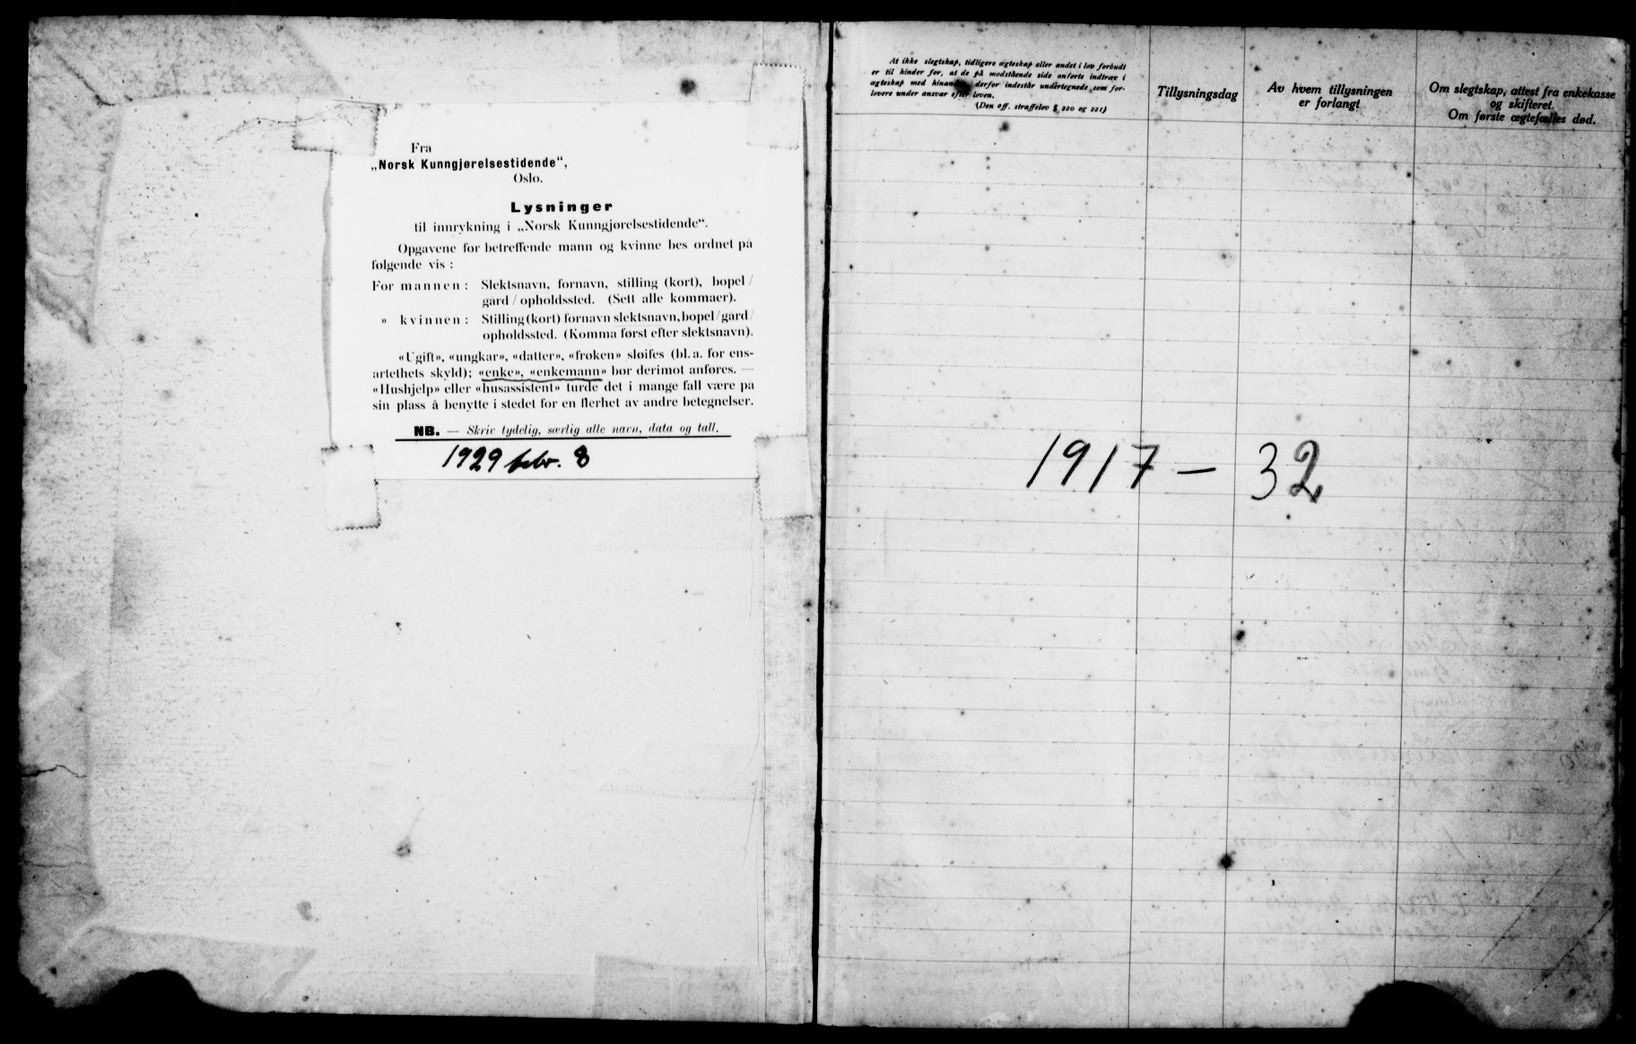 Fra
„Norsk Kunngjørelsestidende“,
Oslo.
Lysninger
til innrykning i „Norsk Kunngjørelsestidende“.
Opgavene for betreffende mann og kvinne bes ordnet på
følgende vis :
For mannen : Slektsnavn, fornavn, stilling (kort), bopel /
gård / opholdssted. (Sett alle kommaer).
» kvinnen : Stilling (kort) fornavn slektsnavn, bopel / gård /
opholdssted. (Komma først efter slektsnavn).
«Ugift», «ungkar», «datter», «frøken» sløifes (bl. a. for ens-
artethets skyld); «enke», «enkemann» bør derimot anføres. —
«Hushjelp» eller «husassistent» turde det i mange fall være på
sin plass å benytte i stedet for en flerhet av andre betegnelser.
NB. — Skriv tydelig, særlig alle navn, data og tall.
1929 febr. 8
At ikke slegtskap, tidligere ægteskap eller andet i lov forbudt
er til hinder for, at de på modstående side anførte indtræ i
ægteskap med hinanden, derfor indestår undertegnede som for-
lovere under ansvar efter loven.
(Den alf. straffelov § 220 og 221)
Tillysningsdag
Av hvem tillysningen
er forlangt
Om slegtskap, attest fra enkekasse
og skifteret.
Om første ægtefælles død.
1917 — 32